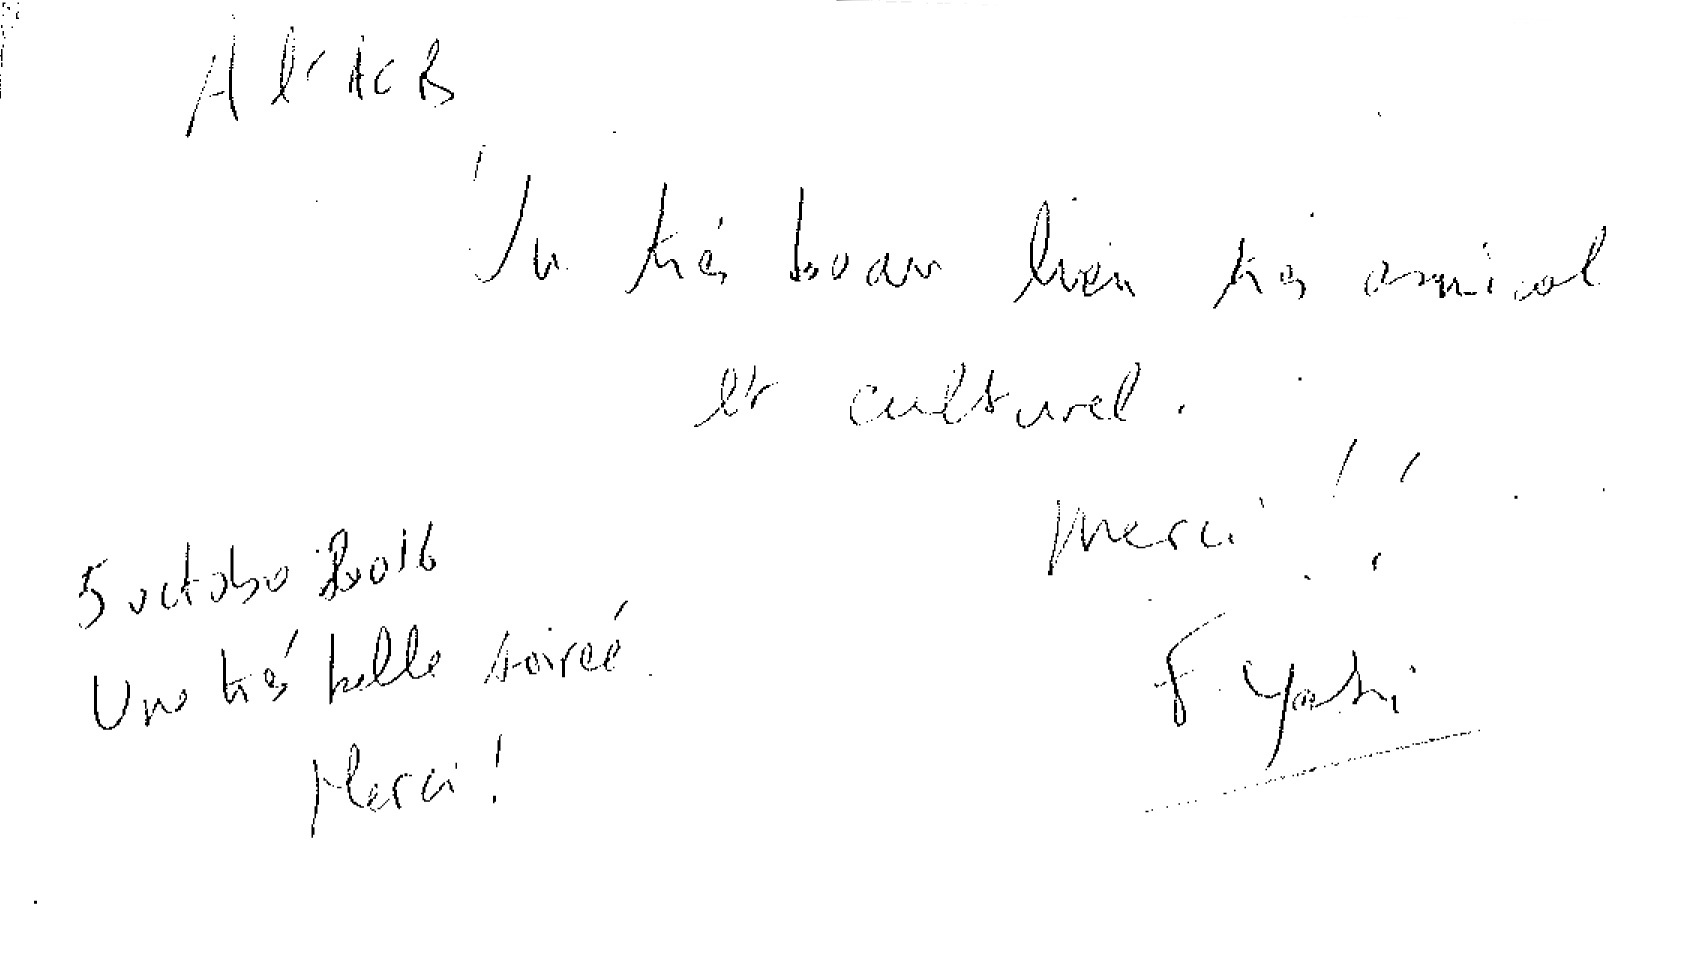 A l'ACB
Un très beau lien très amical
et culturel.
Merci !!
F. Yahi
5 octobre 2016
Une très belle soirée.
Merci !